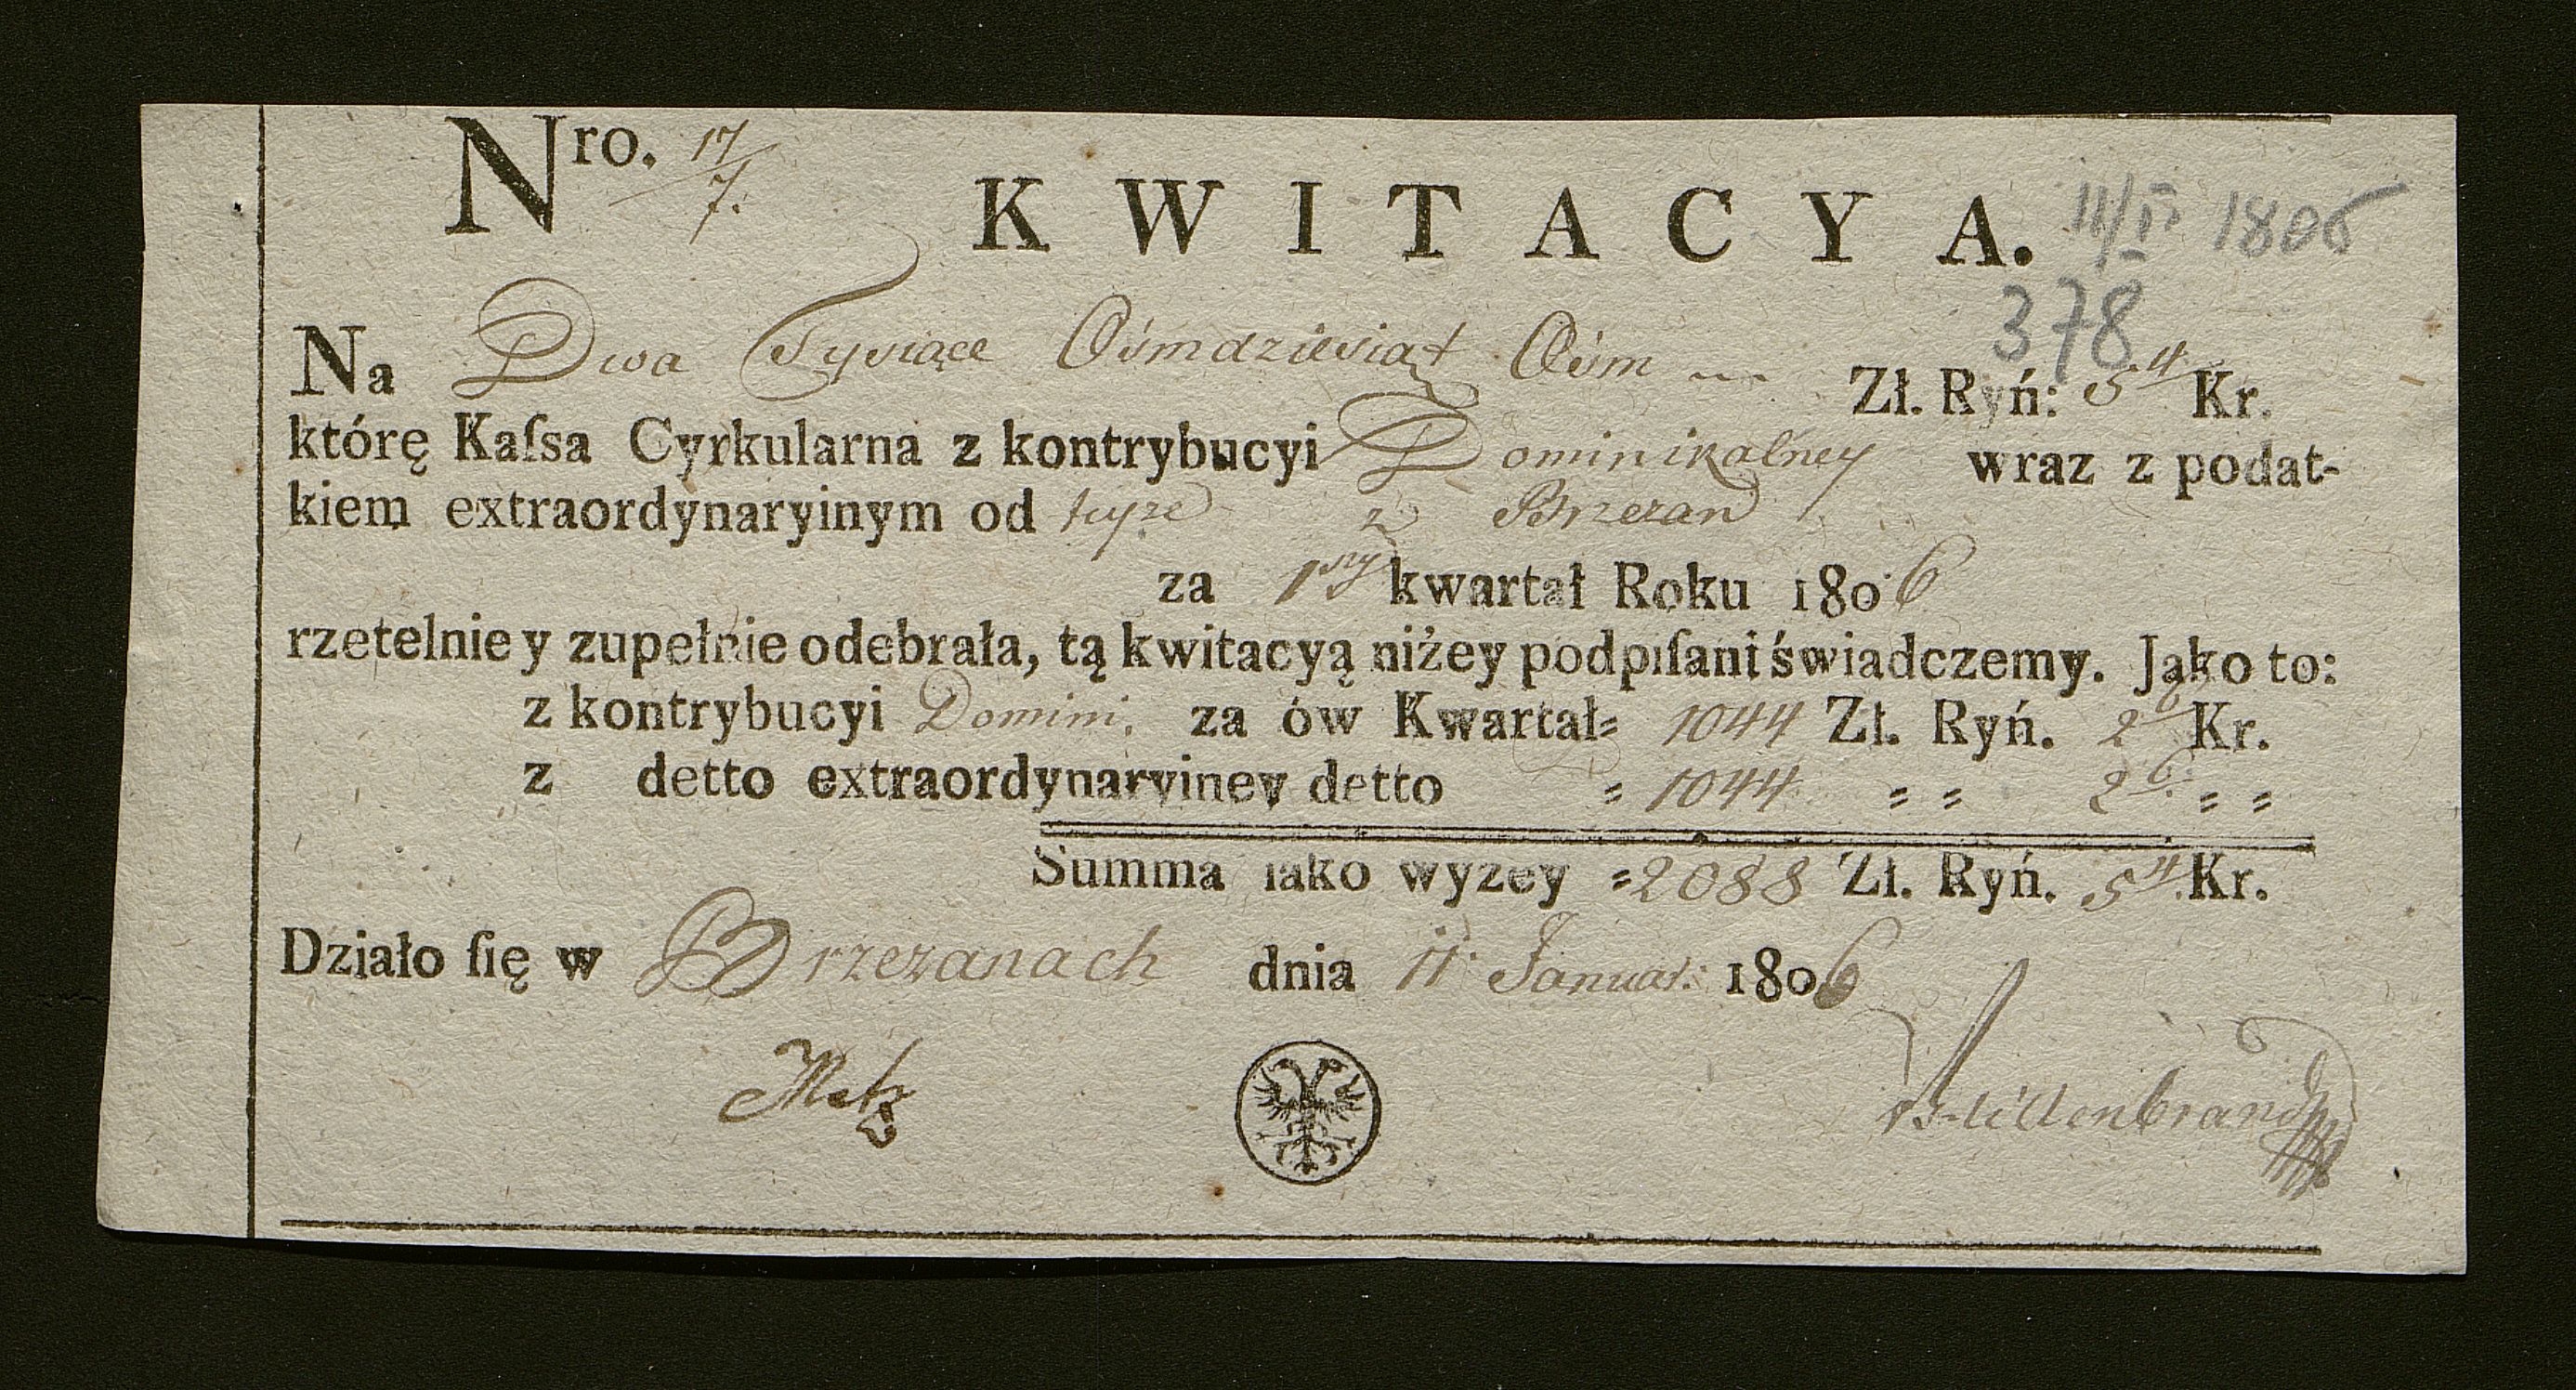 Nro. 17/7.
KWITACYA. 11/I 1806
378
Na Dwa Tysiące Ośmdziesiąt Ośm Zł. Ryń: 54 Kr.
którę Kaſsa Cyrkularna z kontrybucyi Dominikalney wraz z podat-
kiem extraordynaryinym od tuyże z Brzezan
za 1szy kwartał Roku 1806
rzetelnie y zupełnie odebrała, tą kwitacyą niżey podpiſani świadczemy. Jako to:
z kontrybucyi Domini. za ów Kwartał = 1044 Zł. Ryń. 26 Kr.
z detto extraordynaryiney detto = 1044 = = 26. = =
Summa iako wyzey = 2088 Zł. Ryń. 54 Kr.
Działo ſię w Brzezanach dnia 11 Januar: 1806